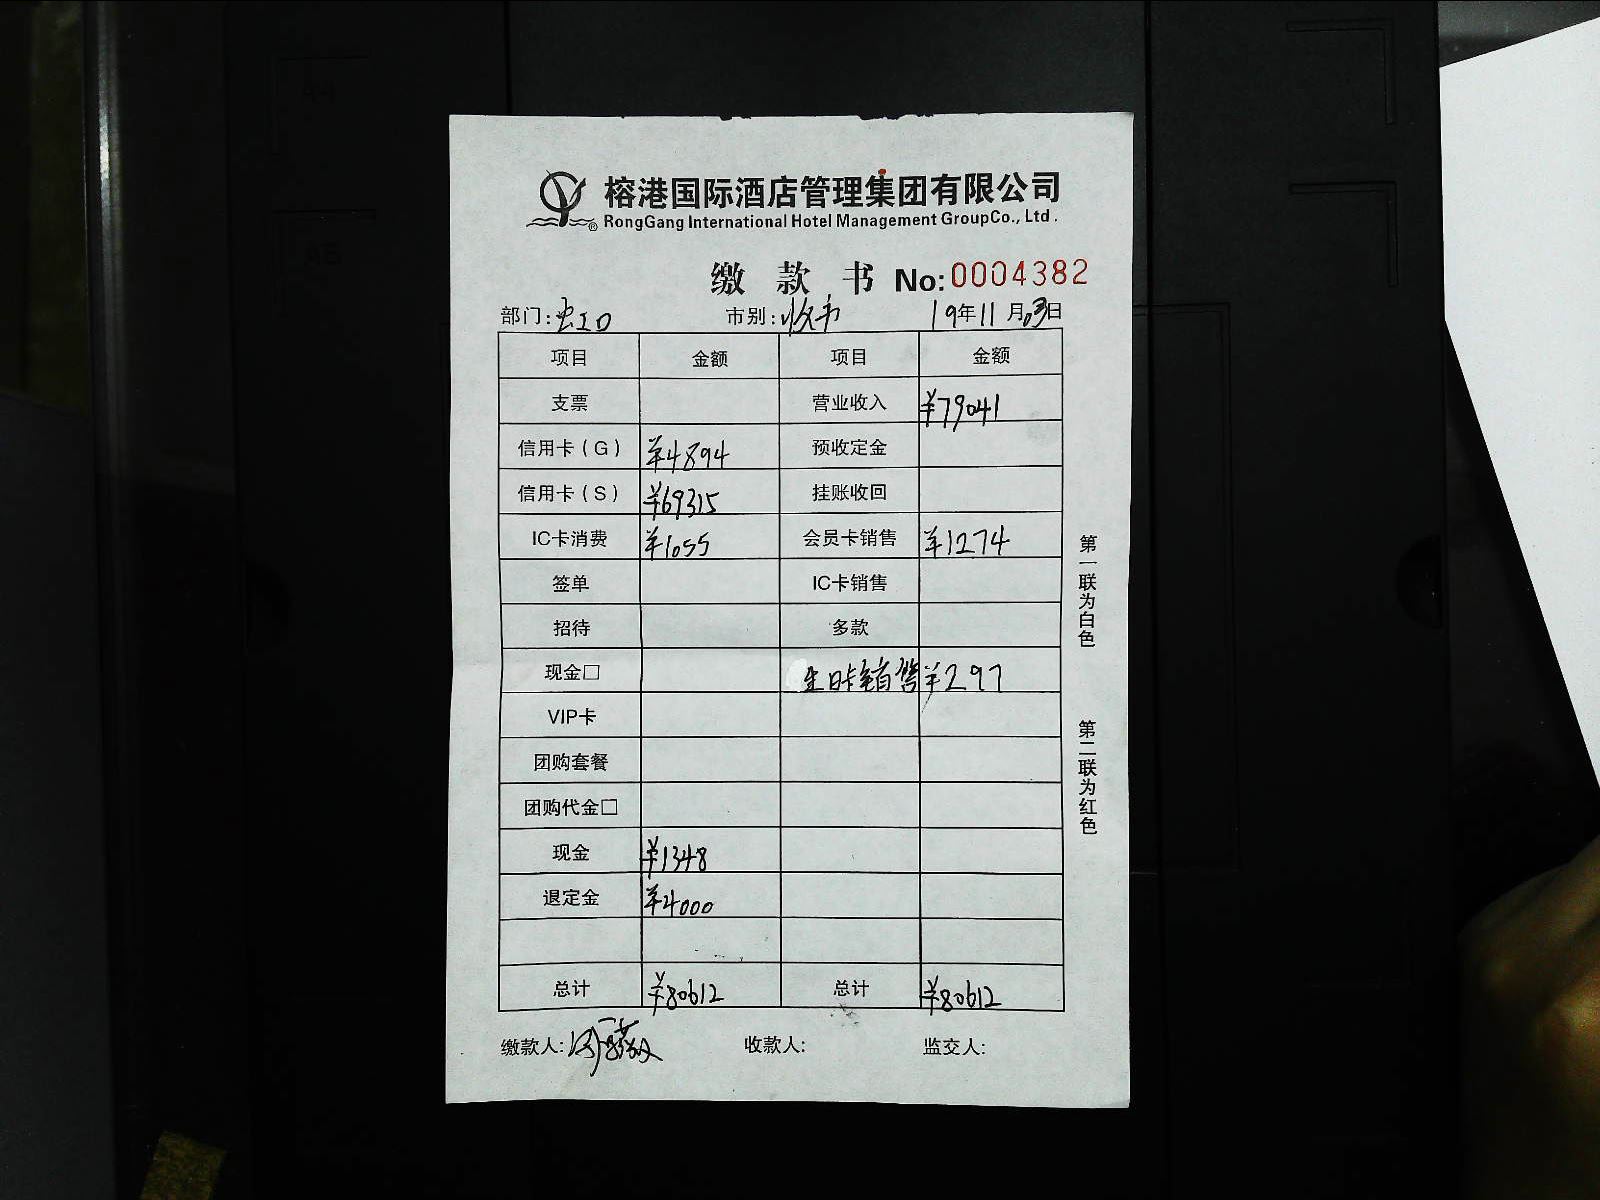 榕港国际酒店管理集团有限公司
RongGang International Hotel Management GroupCo., Ltd.
缴款书 No:0004382
部门:虹口 市别:收市 19年11月03日
项目 金额 项目 金额
支票 营业收入 ¥79041
信用卡(G) ¥4894 预收定金
信用卡(S) ¥69315 挂账收回
IC卡消费 ¥1055 会员卡销售 ¥1274
签单 IC卡销售
招待 多款
现金□ 生日卡销售 ¥297
VIP卡
团购套餐
团购代金□
现金 ¥1348
退定金 ¥4000
总计 ¥80612 总计 ¥80612
缴款人: 收款人: 监交人:
第一联为白色
第二联为红色